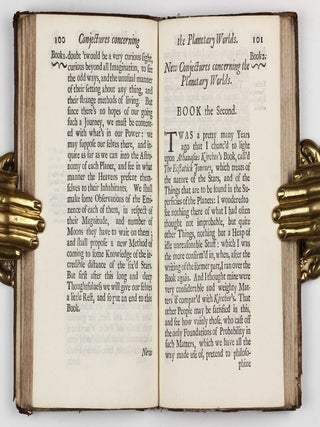 100 Conjectures concerning
Book 1. doubt 'twould be a very curious sight,
curious beyond all Imagination, to see
the odd ways, and the unusual manner
of their setting about any thing, and
their strange methods of living. But
since there's no hopes of our going
such a Journey, we must be content-
ed with what's in our Power: we
may suppose our selves there, and in-
quire as far as we can into the Astro-
nomy of each Planet, and see in what
manner the Heavens present them-
selves to their Inhabitants. We shall
make some Observations of the Emi-
nence of each of them, in respect of
their Magnitude, and number of
Moons they have to wait on them;
and shall propose a new Method of
coming to some Knowledge of the in-
credible distance of the fix'd Stars.
But first after this long and deep
Thoughtfulness we will give our selves
a little Rest, and so put an end to this
Book.
New
the Planetary Worlds. 101
New Conjectures concerning the Book 2.
Planetary Worlds.
BOOK the Second.
TWAS a pretty many Years
ago that I chanc'd to light
upon Athanasius Kircher's Book, call'd
The Ecstatick Journey, which treats of
the nature of the Stars, and of the
Things that are to be found in the Su-
perficies of the Planets: I wonder'd to
see nothing there of what I had often
thought not improbable, but quite
other Things, nothing but a Heap of
idle unreasonable Stuff: which I was
the more confirm'd in, when, after the
writing of the former part, I ran over the
Book again. And I thought mine were
very considerable and weighty Matters
if compar'd with Kircher's. That
other People may be satisfied in this,
and see how vainly those, who cast off
the only Foundations of Probability in
such Matters, which we have all the
way made use of, pretend to philoso-
phize